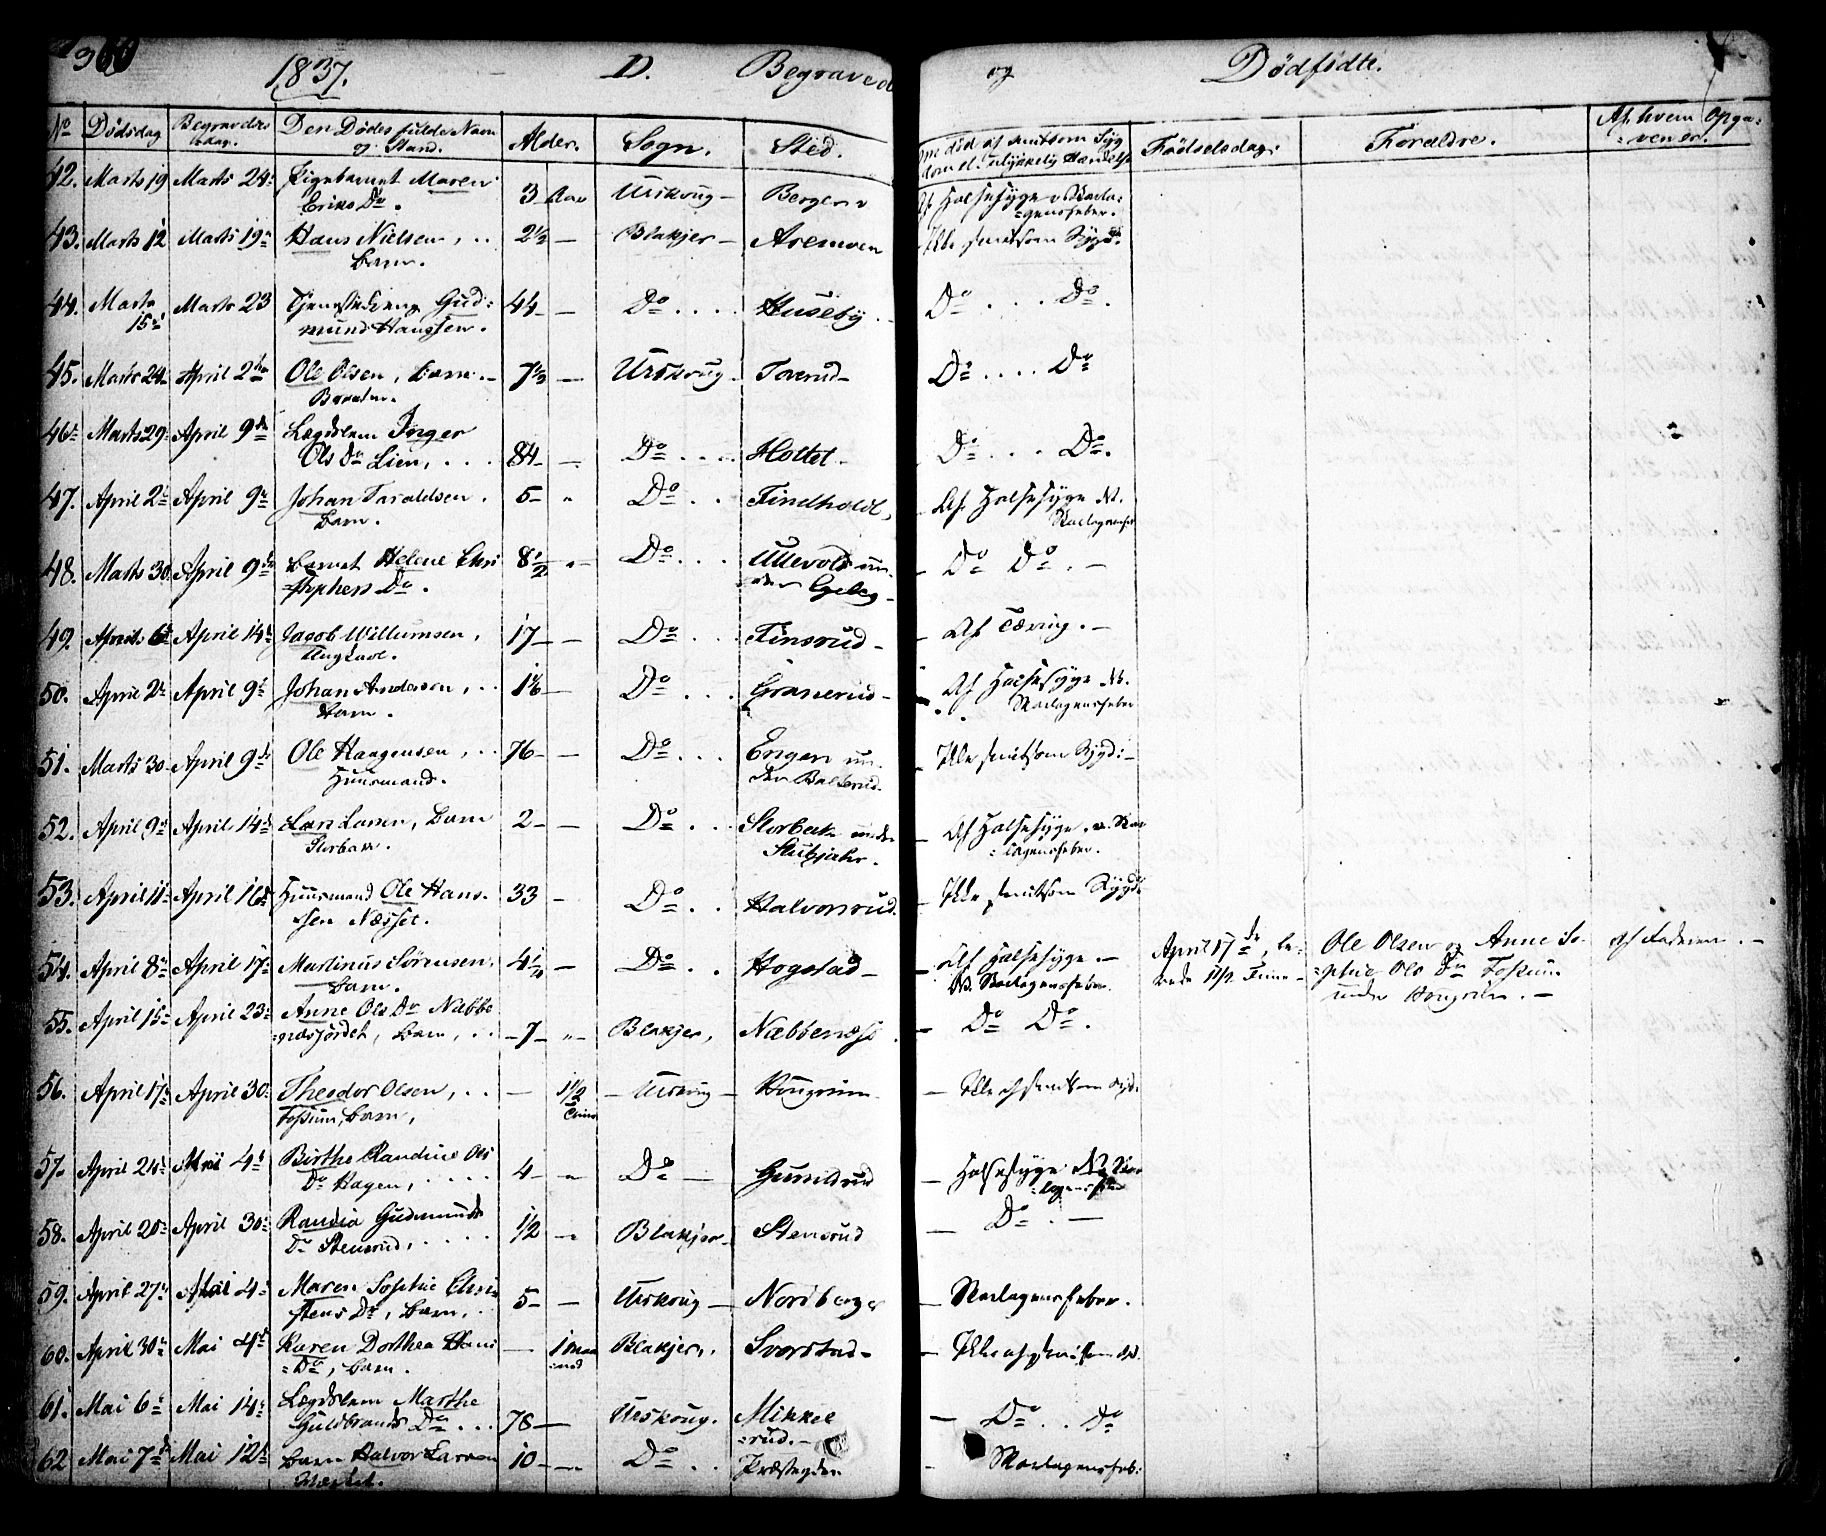 360
1837. D. Begravede og Dødfødte.
No Dødsdag Begravelses dag. Den Dødes fulde Navn og Stand. Alder. Sogn. Sted. Om død af smitsom Syg dom el. ulykkelig Hændelse Fødselsdag. Forældre. Af hvem Opga= =ven er.
42. Marts 19 Marts 24 Pigebarnet Maren
Eriks Do. 3 Aar Urskoug Bergerr Af Halsesyge Skarla= =gensfeber.
43. Marts 12 Marts 19 Hans Nielsen,
barn. 2½ — Blakjer Aremoen Ikke smitsom Sygd.
44. Marts 15 Marts 23 Tjenestedreng Gud=
mund Hanssen. 44 — Do Huseby Do Do.
45. Marts 24 April 2 Ole Olsen, barn
7½ — Urskoug Toverud Do Do
46 Marts 29 April 9 Lægdslem Inger
Ols Do Lien, 84 — Do Holtet Do Do.
47. April 2 April 9 Johan Taraldsen
barn. 5 " Do Findholdt, Af Halsesyge
Skarlagensfeber
48. Marts 30 April 9 barnet Helene Chri
=stophers Do. 8½ " Do Ullevold un=
der Do Do.
49. April 6 April 14 Jacob Willumsen,
Ungkarl. 17 — Do Finsrud Af Tæring.
50. April 2 April 9 Johan Anderson,
barn. 1½ — Do Granerud Af Halsesyge
Skarlagensfeber
51. Marts 30 April 9 Ole Haagensen,
Huusmand. 76 — Do Engen un=
der Ikke smitsom Sygd:
52. April 9 April 14 Lars Larsen, barn
Storbæk. 2 — Do Storbæk under
Af Halsesyge Skar
=lagensfeber.
53. April 11 April 16 Huusmand Ole Hans=
sen Næsset. 33 — Do Halvorsrud Ikke smitsom Sygd
54. April 8 April 17 Martinus Sørensen,
barn. 4¼ — Do Hogstad Af Halsesyge.
Skarlagensfeber. April 17de, Ole Olsen og Anne So=
=phie Ols Do Fossum
under Hougrim. Af Faderen.
55. April 15 April 23 Anne Ols Do Næbbe
=næsfjordet, barn, 7 " Blakjer, Næbbenæss Do Do.
56. April 17 April 30 Theodor Olsen,
Fossum, barn, — 1½ Urskoug Hougrim Ikke af smitsom Sygd.
57. April 24 Mai 4 Birthe Randine Ols
Do Hagen, 4 " Do Gunildrud Halsesyge Skar
=lagensfeber
58. April 20 April 30 Randia Gudmunds
Do Stensrud, 1½ " Blakjer Stensrud Do.
59. April 27 Mai 4 Maren Sophie Chri
stens Do, barn, 5 — Urskoug Nordberger Skarlagensfeber.
60. April 30 Mai 4 Karen Dorthea Hans
=Do, barn. — 1 Maa
ned Blakjer, Svorstad Ikke af smitsom Syd.
61. Mai 6 Mai 14 Lægdslem Marthe
Guldbrands Do 78 — Urskoug. Mikkel
=rud. Do Do
62 Mai 7 Mai 12 barn Halvor Larsen
10 " Do Præstegden Skarlagensfeb: